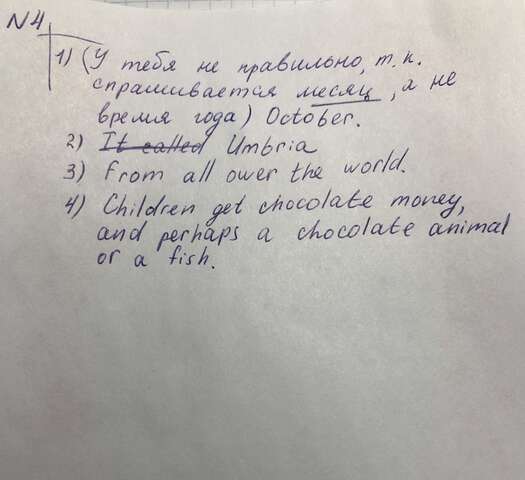 N4
1) (У тебя не правильно, т.к.
спрашивается месяц, а не
время года) October.
2) It called Umbria
3) From all ower the world.
4) Children get chocolate money,
and perhaps a chocolate animal
or a fish.